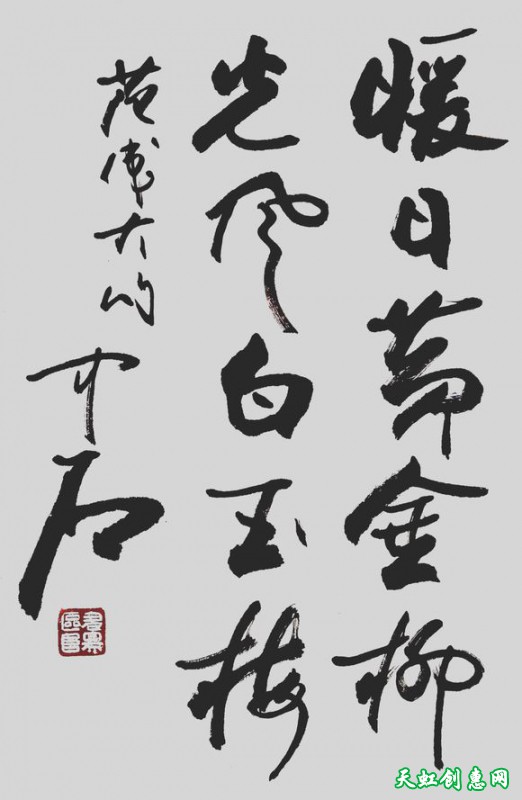 暖日黄金柳
光风白玉梅
范成大句
中石
天虹创惠网